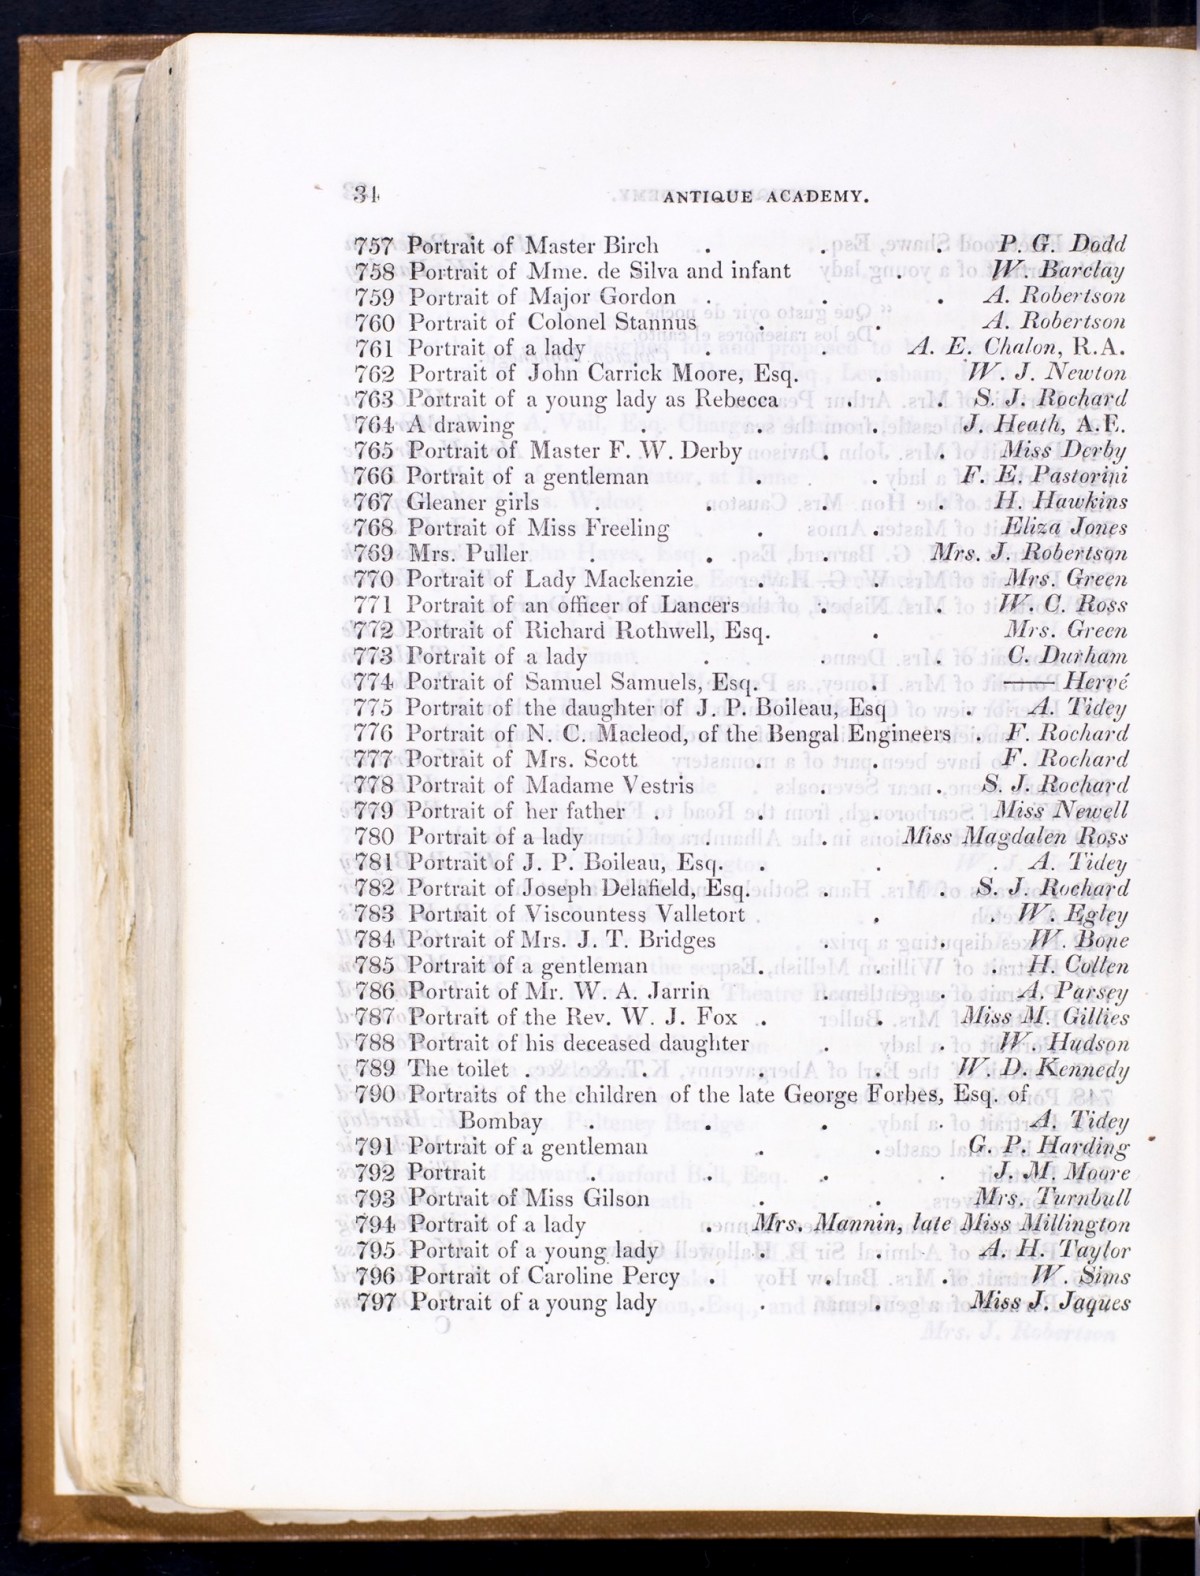 34 ANTIQUE ACADEMY.
757 Portrait of Master Birch . . . P. G. Dodd
758 Portrait of Mme. de Silva and infant . W. Barclay
759 Portrait of Major Gordon . . . A. Robertson
760 Portrait of Colonel Stannus . . A. Robertson
761 Portrait of a lady . . A. E. Chalon, R.A.
762 Portrait of John Carrick Moore, Esq. . W. J. Newton
763 Portrait of a young lady as Rebecca . . S. J. Rochard
764 A drawing . . . J. Heath, A.E.
765 Portrait of Master F. W. Derby . . Miss Derby
766 Portrait of a gentleman . . F. E. Pastorini
767 Gleaner girls . . . . H. Hawkins
768 Portrait of Miss Freeling . . Eliza Jones
769 Mrs. Puller . . . Mrs. J. Robertson
770 Portrait of Lady Mackenzie . . Mrs. Green
771 Portrait of an officer of Lancers . . W. C. Ross
772 Portrait of Richard Rothwell, Esq. . Mrs. Green
773 Portrait of a lady . . . C. Durham
774 Portrait of Samuel Samuels, Esq. . —— Hervé
775 Portrait of the daughter of J. P. Boileau, Esq . A. Tidey
776 Portrait of N. C. Macleod, of the Bengal Engineers . F. Rochard
777 Portrait of Mrs. Scott . . F. Rochard
778 Portrait of Madame Vestris . . S. J. Rochard
779 Portrait of her father . . . Miss Newell
780 Portrait of a lady . . Miss Magdalen Ross
781 Portrait of J. P. Boileau, Esq. . . . A. Tidey
782 Portrait of Joseph Delafield, Esq. . . S. J. Rochard
783 Portrait of Viscountess Valletort . . W. Egley
784 Portrait of Mrs. J. T. Bridges . . W. Bone
785 Portrait of a gentleman . . . H. Collen
786 Portrait of Mr. W. A. Jarrin . . A. Parsey
787 Portrait of the Rev. W. J. Fox . . Miss M. Gillies
788 Portrait of his deceased daughter . . W. Hudson
789 The toilet . . . . W. D. Kennedy
790 Portraits of the children of the late George Forbes, Esq. of
Bombay . . . . A. Tidey
791 Portrait of a gentleman . . G. P. Harding
792 Portrait . . . . J. M. Moore
793 Portrait of Miss Gilson . . Mrs. Turnbull
794 Portrait of a lady . Mrs. Mannin, late Miss Millington
795 Portrait of a young lady . . A. H. Taylor
796 Portrait of Caroline Percy . . . W. Sims
797 Portrait of a young lady . . Miss J. Jaques